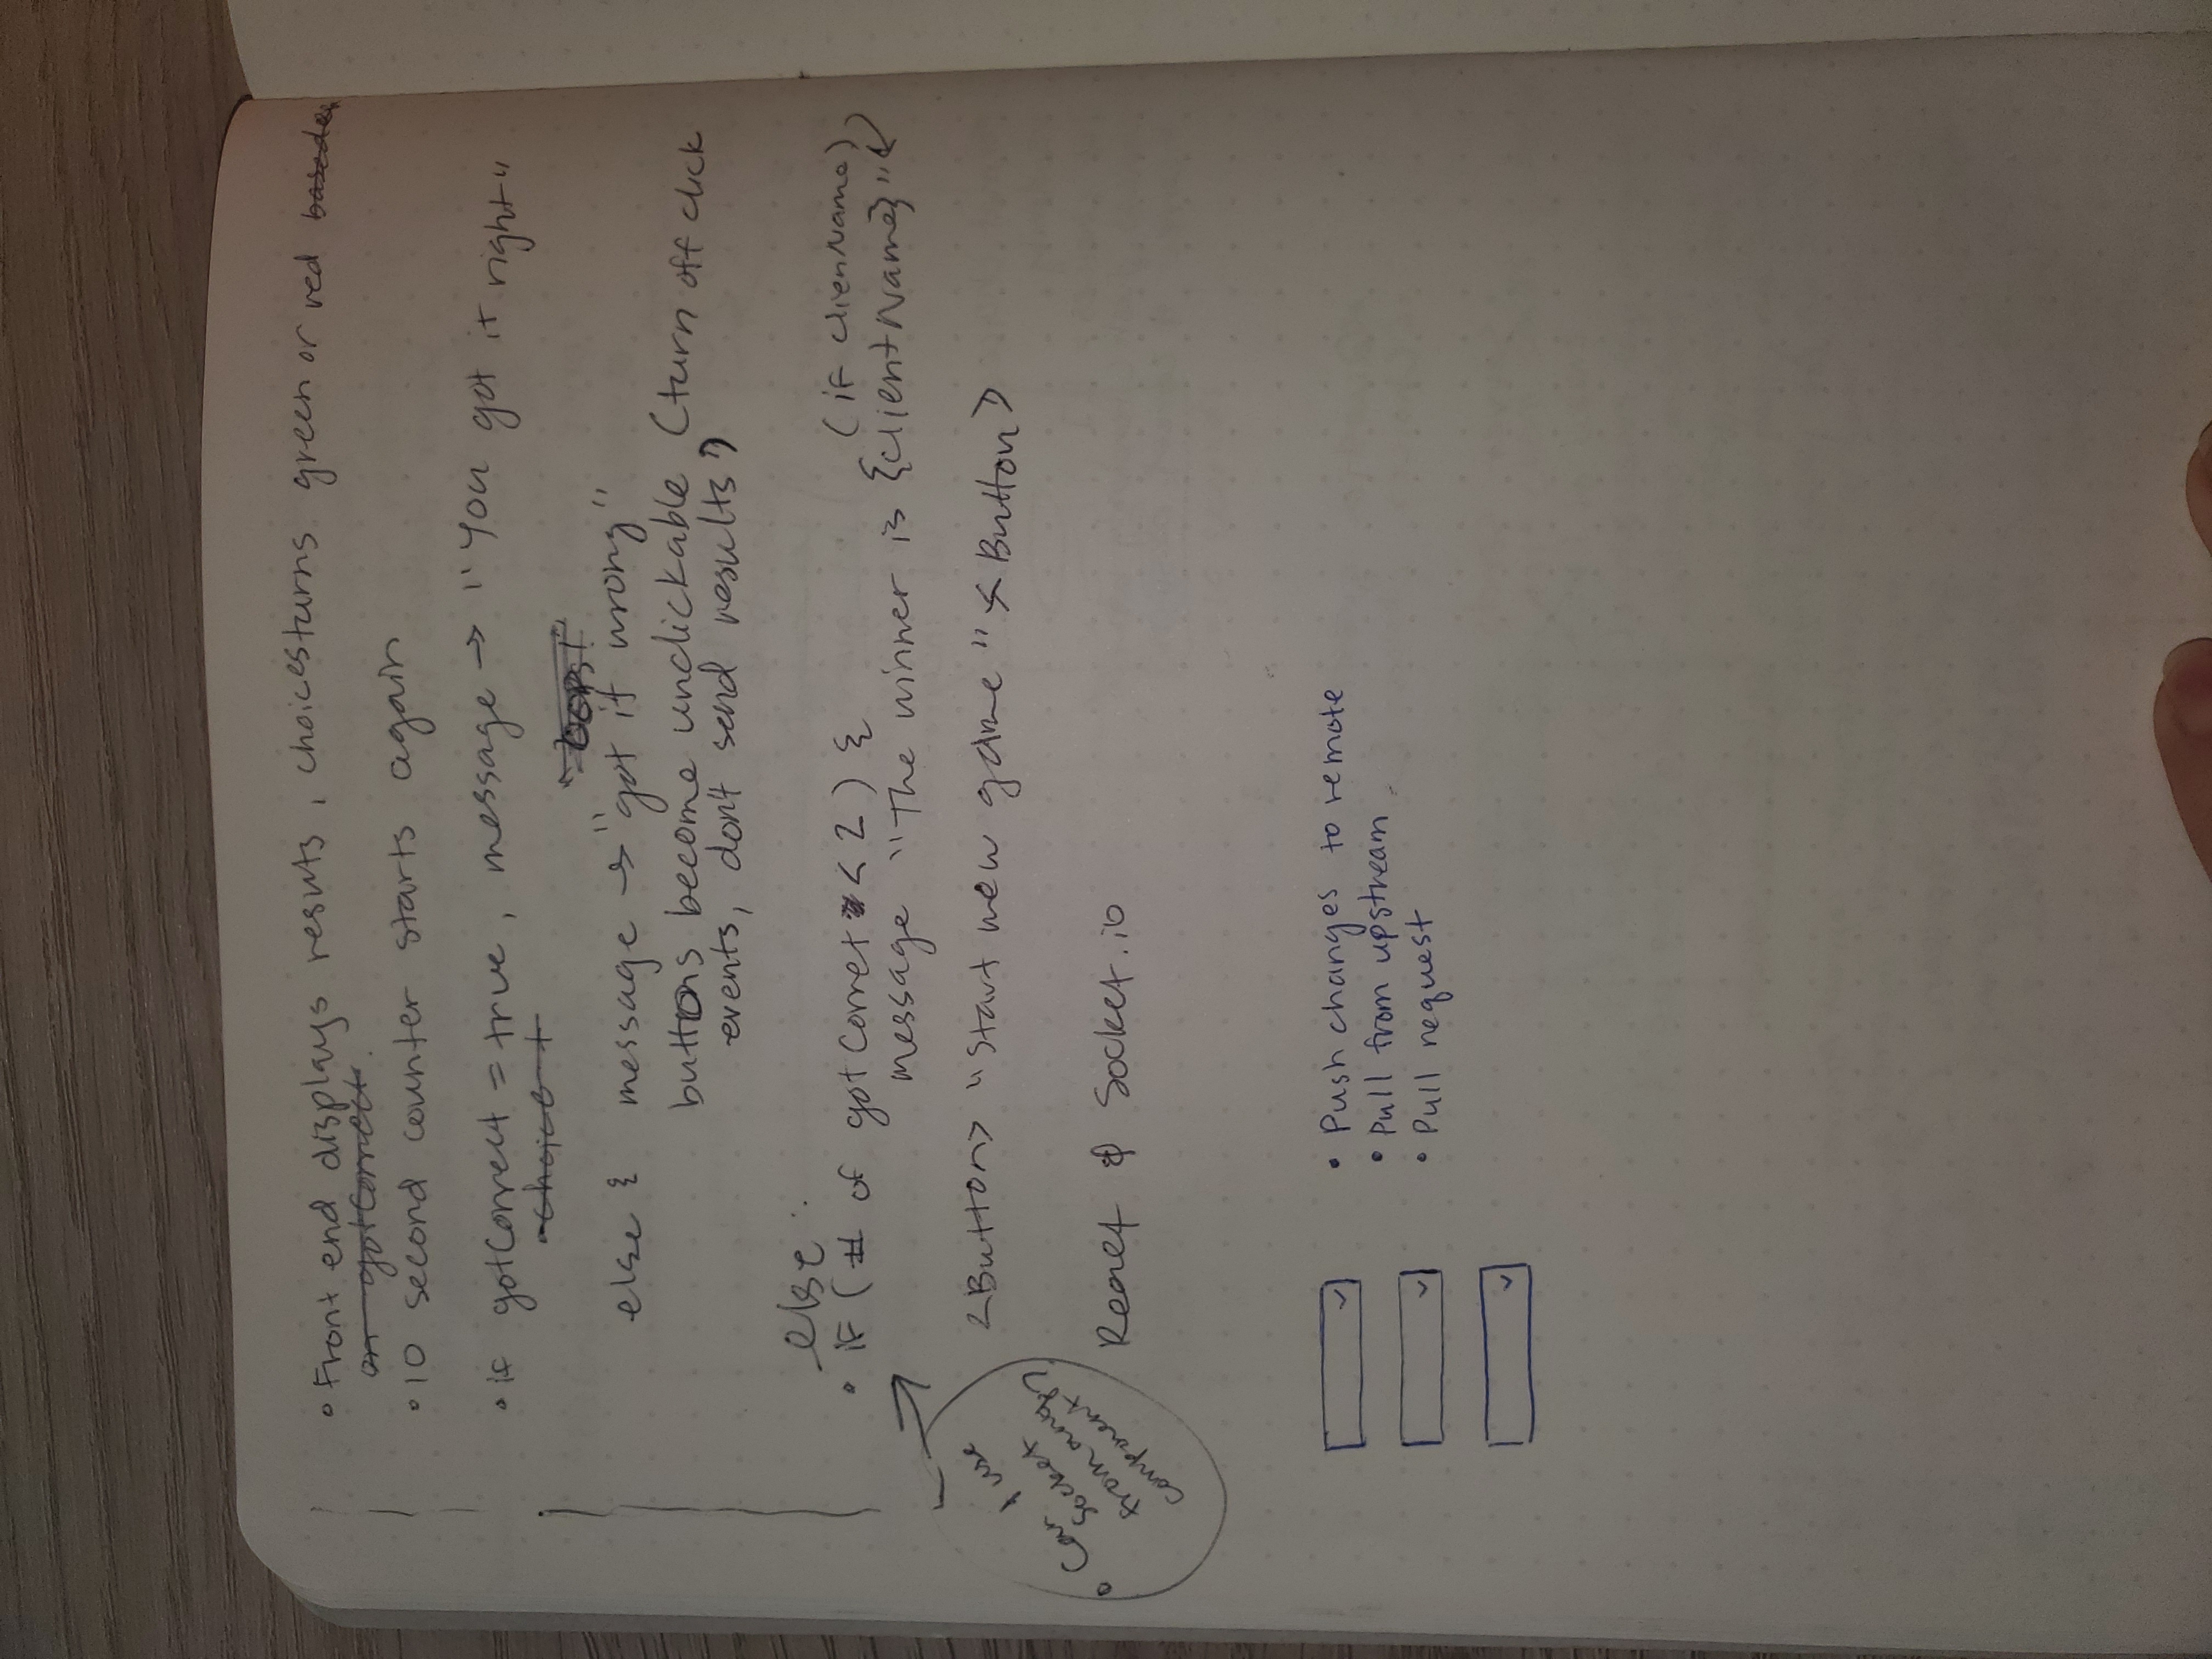 • Front end displays results, choices turns green or red based
on gotCorrect.
• 10 second counter starts again
• if gotCorrect = true, message → "You got it right"
• choice +
"oops!"
else { message → "got it wrong"
buttons become unclickable (turn off click
events, don't send results)
else:
• if (# of gotCorret < 2) { (if clienName)
message "The winner is {clientName}"
<Button> "Start new game" <Button>
• Can I use
Socket
from any
component?
React & Socket.io
• Push changes to remote
• Pull from upstream
• Pull request